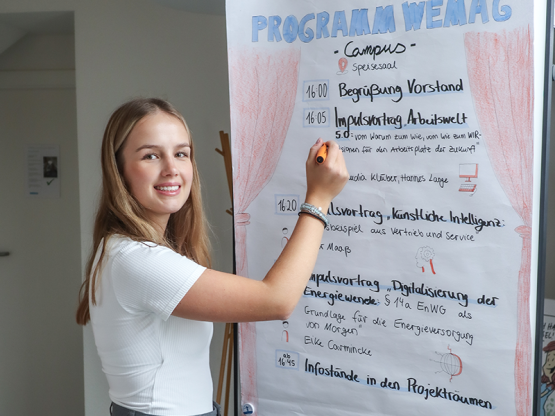 PROGRAMM WEMAG
- Campus -
Speisesaal
16:00 Begrüßung Vorstand
16:05 Impulsvortrag Arbeitswelt
5.0: "vom Warum zum Wie, vom Wie zum WIR-
ionen für den Arbeitsplatz der Zukunft"
Klüber, Hannes Lage
16:20 lsvortrag "Künstliche Intelligenz:
beispiel aus Vertrieb und Service
Maaß
Impulsvortrag "Digitalisierung der
Energiewende: § 14a EnWG als
Grundlage für die Energieversorgung
von Morgen"
Elke Carmincke
ab
16:45 Infostände in den Projekträumen